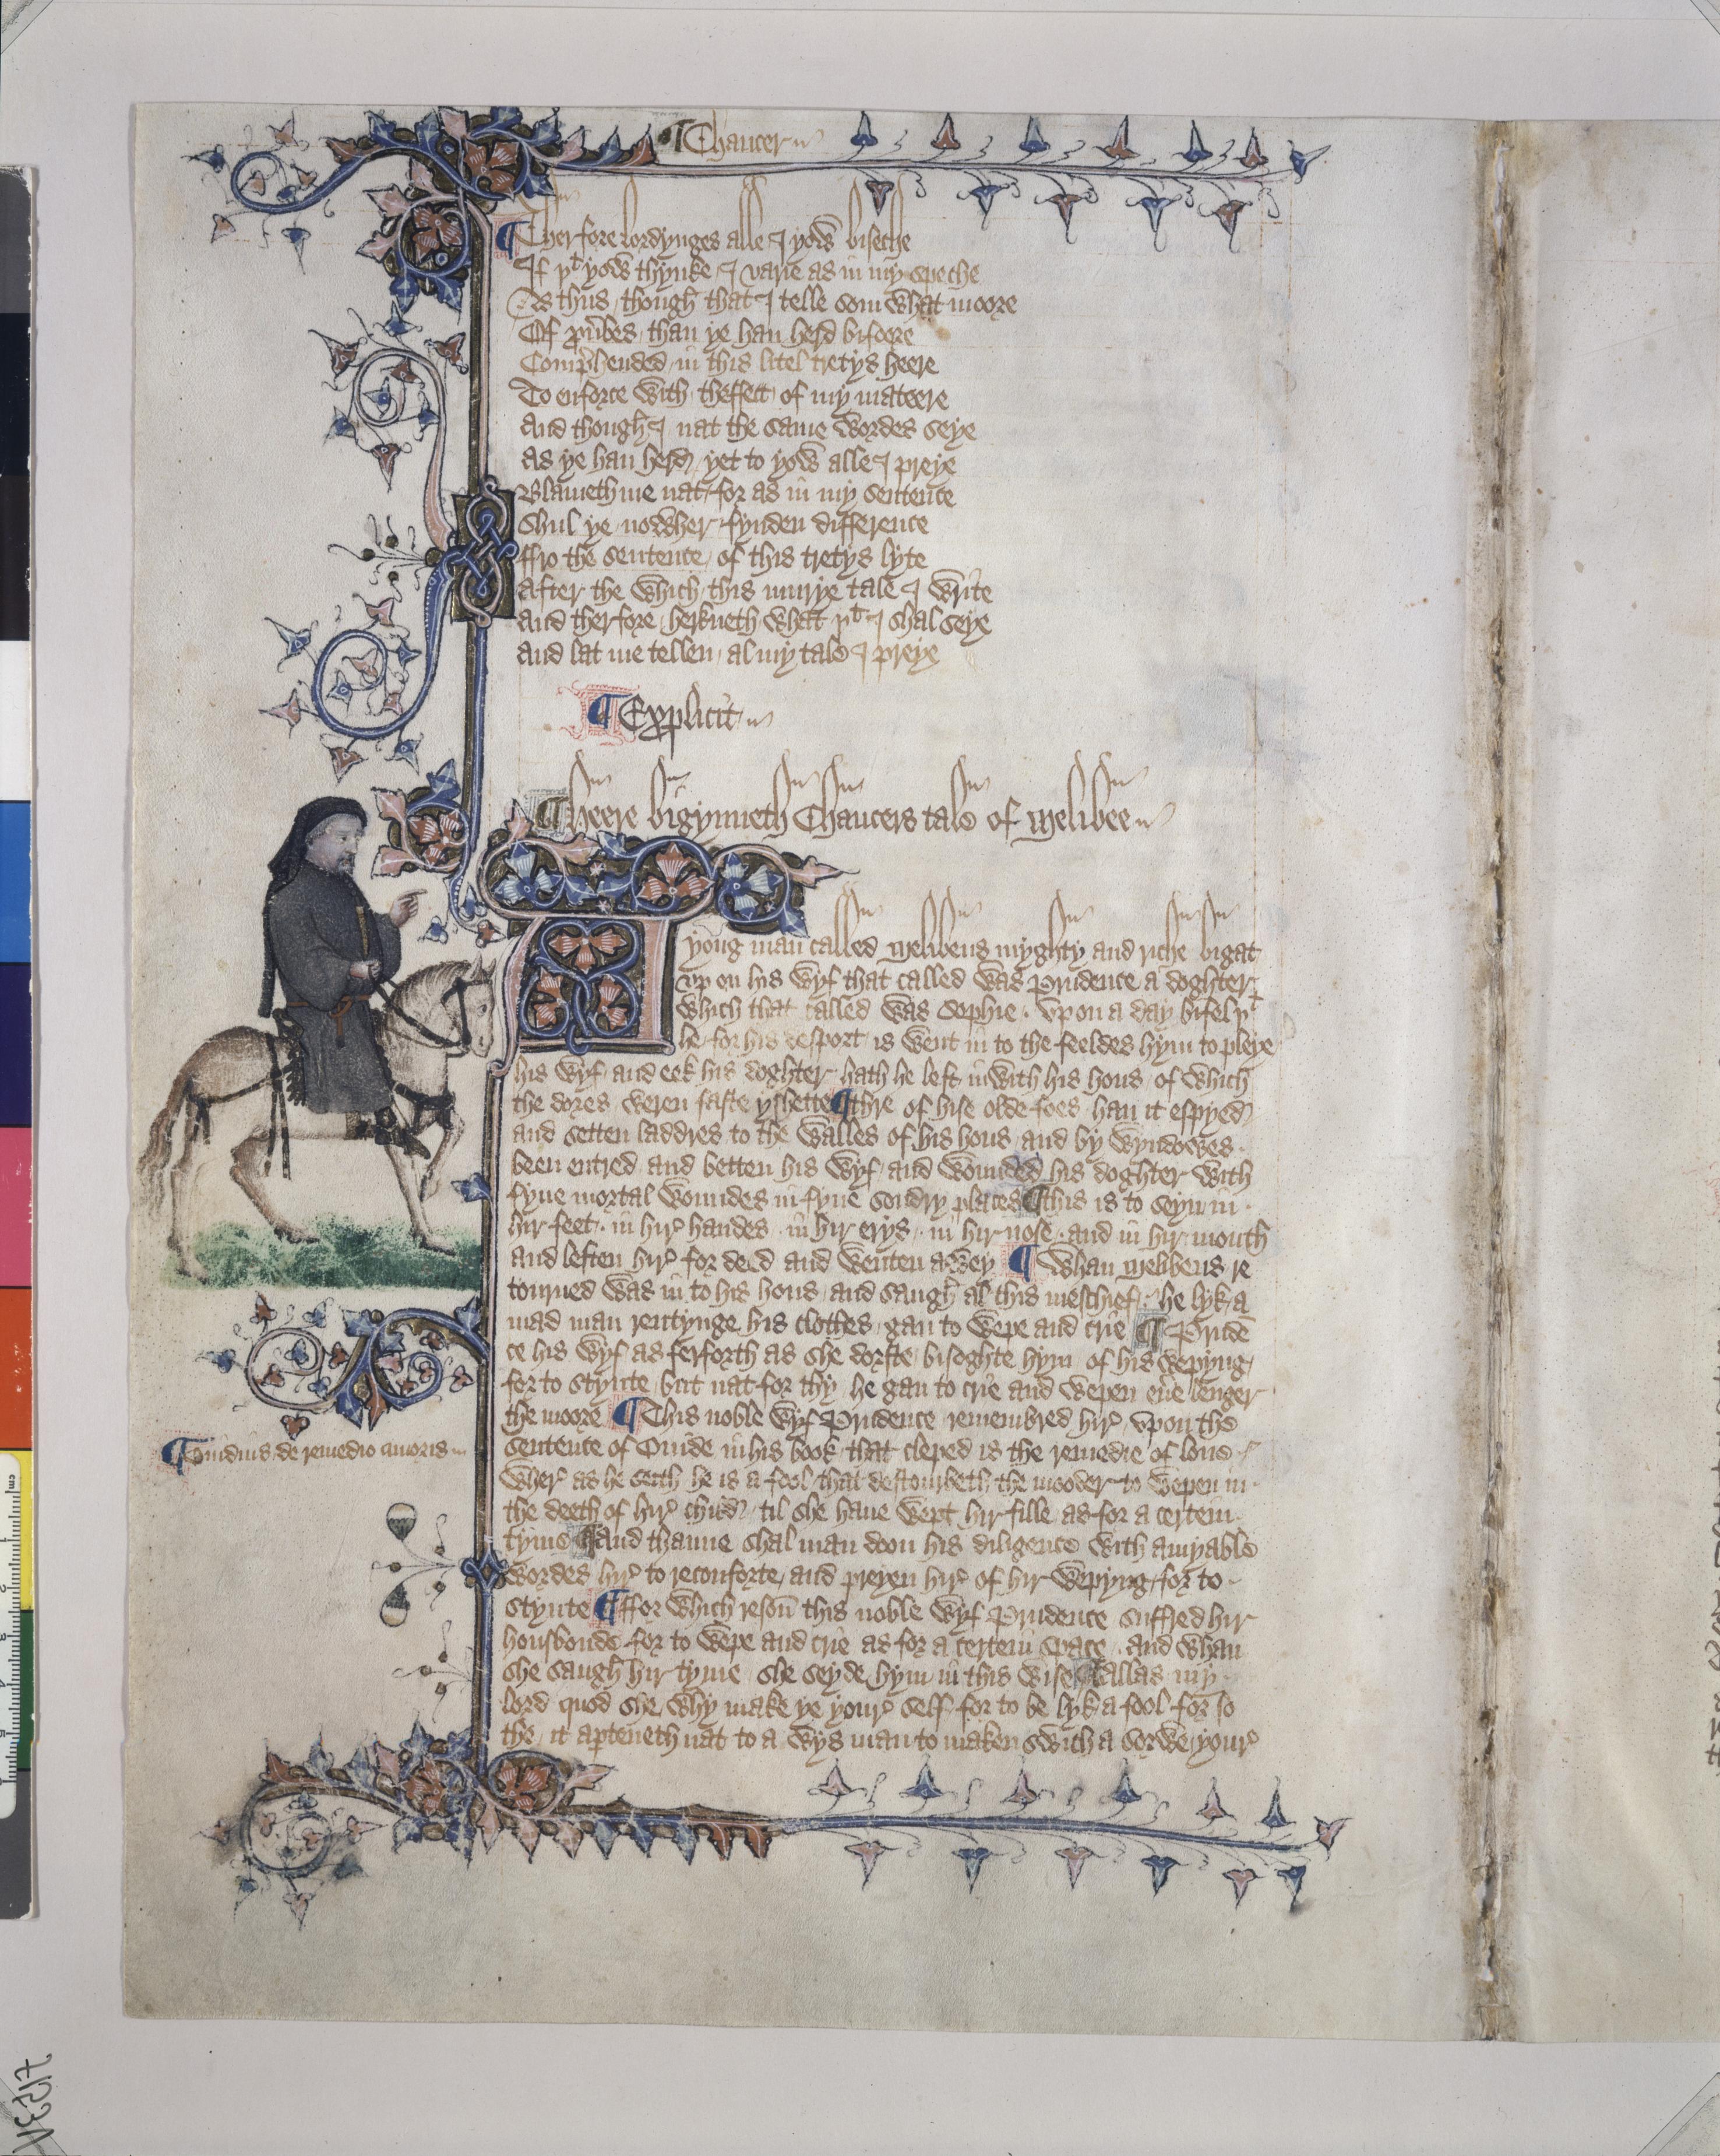 ¶ Chaucer
¶ Therfore lordynges alle I yow biseche
If þt yow thynke I varie as in my speche
As thus though that I telle som what moore
Of prouerbes than ye han herd bifoore
Comprehended in this litel tretys heere
To enforce with theffect of my mateere
And though I nat the same wordes seye
As ye han herd yet to yow alle I preye
Blameth me nat for as in my sentence
Shul ye nowher fynden difference
ffro the sentence of this tretys lyte
After the which this murye tale I write
And therfore herkneth what þt I shal seye
And lat me tellen al my tale I preye
¶ Explicit
¶ Heere bigynneth Chaucers tale of Melibee
A yong man called Melibeus myghty and riche bigat
vp on his wyf that called was Prudence a doghter
which that called was Sophie . vpon a day bifel þt
he for his desport is went in to the feeldes hym to pleye
his wyf and eek his doghter hath he left inwith his hous of which
the dores weren faste yshette ¶ thre of hise olde foes han it espyed
and setten laddres to the walles of his hous and by wyndowes
been entred and betten his wyf and wounded his doghter with
fyue mortal woundes in fyue sondry places ¶ this is to seyn in
hir feet . in hir handes . in hir erys . in hir nose . and in hir mouth
and leften hir for deed and wenten awey ¶ Whan Melibeus re
tourned was in to his hous and saugh al this meschief he lyk a
mad man rentynge his clothes gan to wepe and crie ¶ Pruden
ce his wyf as ferforth as she dorste bisoghte hym of his wepyng
for to stynte but nat for thy he gan to crie and wepen euer lenger
the moore ¶ This noble wyf Prudence remembred hir vpon the
sentence of Ouide in his book that cleped is the remedie of loue
¶ Ouidius de remedio amoris
Wher as he seith he is a fool that destourbeth the mooder to wepen in
the deeth of hir child til she haue wept hir fille as for a certein
tyme ¶ And thanne shal man doon his diligence with amyable
wordes hir to reconforte and preyen hir of hir wepyng for to
stynte ¶ ffor which reson this noble wyf Prudence suffred hir
housbonde for to wepe and crie as for a certein space . and whan
she saugh hir tyme she seyde hym in this wise ¶ allas my
lord quod she why make ye your self for to be lyk a fool for so
the it aperteneth nat to a wys man to maken swich a sorwe your